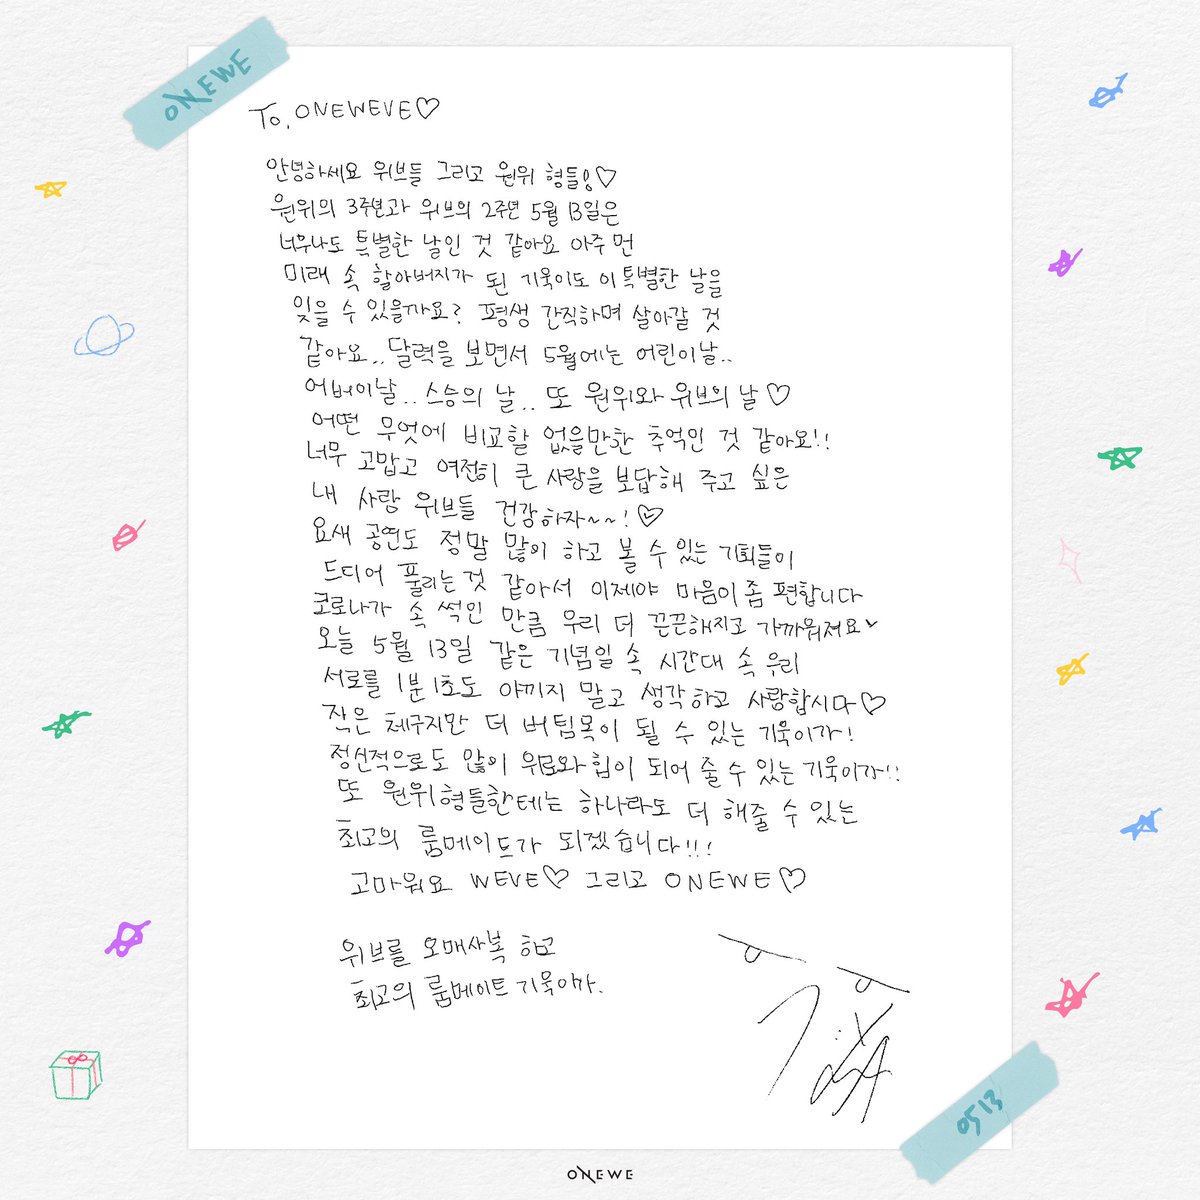 ONEWE
To. ONEWEVE♡
안녕하세요 위브들 그리고 원위 형들!♡
원위의 3주년과 위브의 2주년 5월 13일은
너무나도 특별한 날인 것 같아요 아주 먼
미래 속 할아버지가 된 기욱이도 이 특별한 날을
잊을 수 있을까요? 평생 간직하며 살아갈 것
같아요.. 달력을 보면서 5월에는 어린이날..
어버이날.. 스승의 날.. 또 원위와 위브의 날♡
어떤 무엇에 비교할 없을만한 추억인 것 같아요!!
너무 고맙고 여전히 큰 사랑을 보답해 주고 싶은
내 사람 위브들 건강하자~~!♡
요새 공연도 정말 많이 하고 볼 수 있는 기회들이
드디어 풀리는 것 같아서 이제야 마음이 좀 편합니다
코로나가 속 썩인 만큼 우리 더 끈끈해지고 가까워져요
오늘 5월 13일 같은 기념일 속 시간대 속 우리
서로를 1분 1초도 아끼지 말고 생각하고 사랑합시다♡
작은 체구지만 더 버팀목이 될 수 있는 기욱이가!
정신적으로도 많이 위로와 힘이 되어 줄 수 있는 기욱이가!!
또 원위형들한테는 하나라도 더 해줄 수 있는
최고의 룸메이드가 되겠습니다!!!
고마워요 WEVE♡ 그리고 ONEWE♡
위브를 오매사복 하고
최고의 룸메이트 기욱이가.
0513
ONEWE